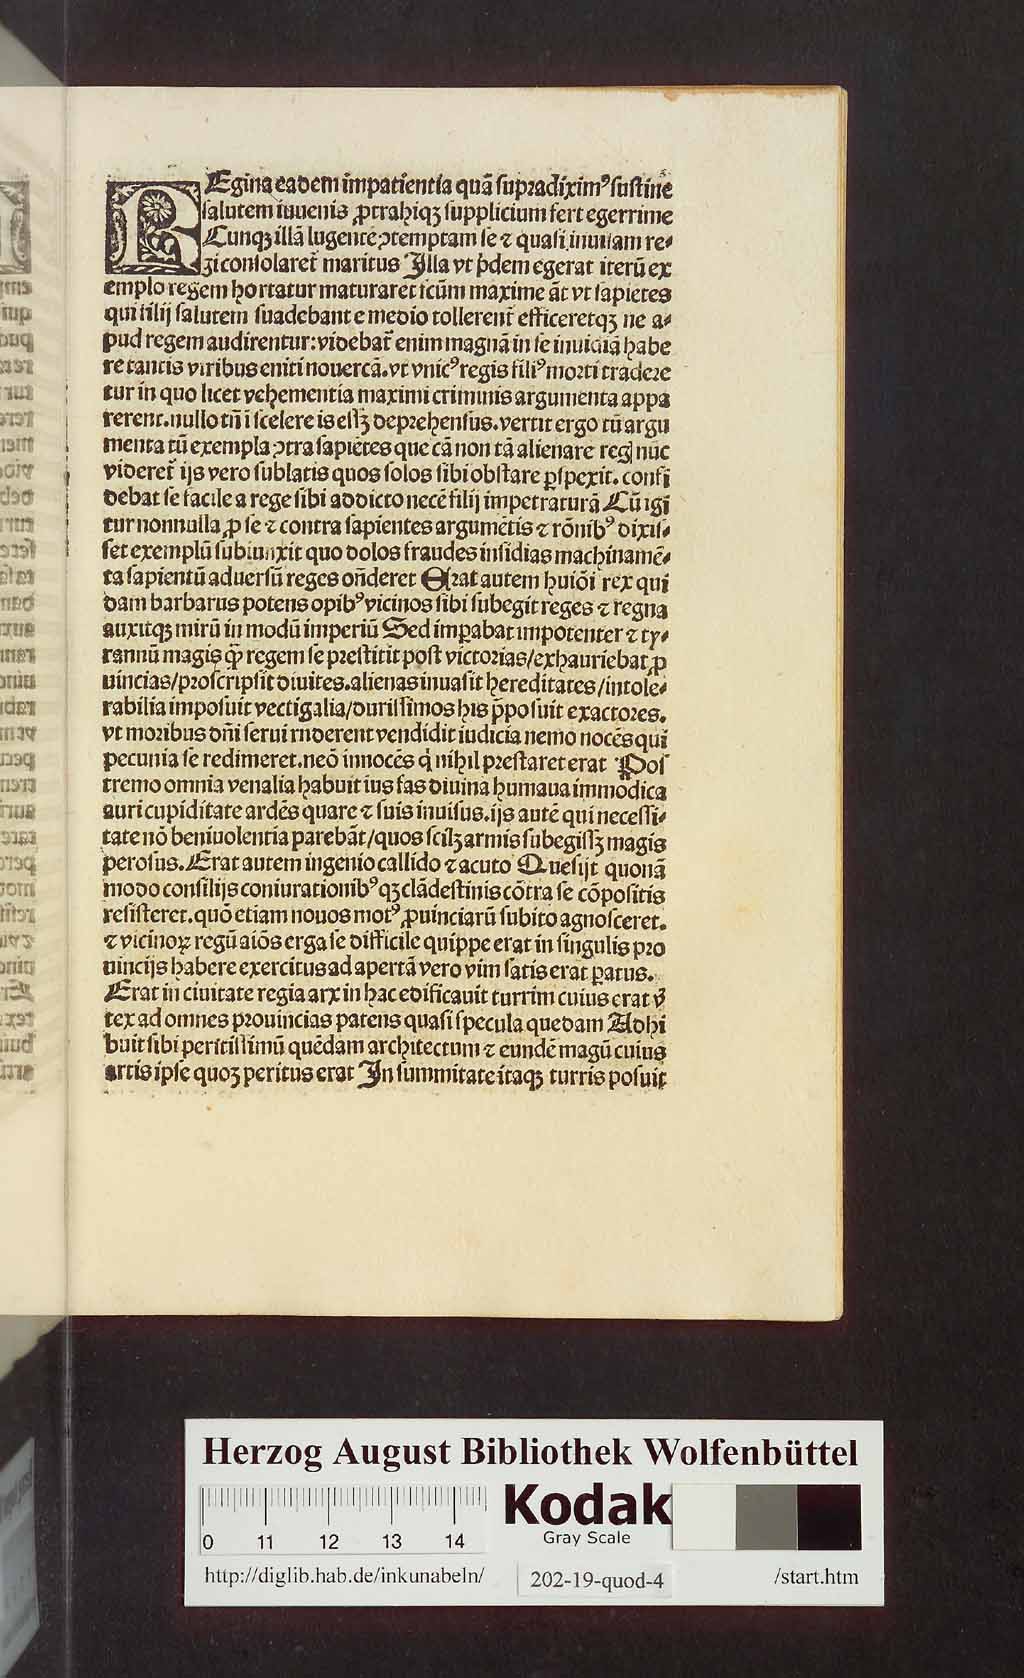 REgina eadem impatientia quã supradiximꝰ sustine
salutem iuuenis ꝓtrahiqꝫ supplicium fert egerrime
Cunqꝫ illã lugentẽ ꝯtemptam se ⁊ quasi inuisam re⸗
gi consolaret᷑ maritus Illa vt p̃dem egerat iterũ ex
emplo regem hortatur maturaret scũm maxime ãt vt sapiẽtes
qui filij salutem suadebant e medio tollerent᷑ efficeretqꝫ ne a⸗
pud regem audirentur: videbat᷑ enim magnã in se inuidiã habe
re tantis viribus eniti nouercã. vt vnicꝰ regis filiꝰ morti tradere
tur in quo licet vehementia maximi criminis argumenta appa
rerent. nullo tñ ĩ scelere is essꝫ deprehensus. vertit ergo tũ argu
menta tũ exempla ꝯtra sapiẽtes que cã non tã alienare regẽ nũc
videret᷑ ijs vero sublatis quos solos sibi obstare ꝑspexit. confi
debat se facile a rege sibi addicto necẽ filij impetraturã Cũ igi
tur nonnulla ꝓ se ⁊ contra sapientes argumẽtis ⁊ rõnibꝰ dixis⸗
set exemplũ subiunxit quo dolos fraudes insidias machinamẽ⸗
ta sapientũ aduersũ reges oñderet Erat autem huiõi rex qui
dam barbarus potens opibꝰ vicinos sibi subegit reges ⁊ regna
auxitqꝫ mirũ in modũ imperiũ Sed imꝑabat impotenter ⁊ ty⸗
rannũ magis q̃ꝫ regem se prestitit post victorias/exhauriebat ꝓ
uincias/proscripsit diuites. alienas inuasit hereditates/intole⸗
rabilia imposuit vectigalia/durissimos his p̃posuit exactores.
vt moribus dñi serui rñderent vendidit iudicia nemo nocẽs qui
pecunia se redimeret. neõ innocẽs q̇ nihil prestaret erat Pos
tremo omnia venalia habuit ius fas diuina humaua immodica
auri cupiditate ardẽs quare ⁊ suis inuisus. ijs autẽ qui necessi⸗
tate nõ beniuolentia parebãt/quos scilꝫ armis subegissꝫ magis
perosus. Erat autem ingenio callido ⁊ acuto Quesijt quonã
modo consilijs coniurationibꝰqꝫ clãdestinis cõtra se cõpositis
resisteret. quõ etiam nouos motꝰ ꝓuinciarũ subito agnosceret.
⁊ vicinoꝝ regũ aiõs erga se difficile quippe erat in singulis pro
uincijs habere exercitus ad apertã vero vim satis erat ꝑatus.
Erat in ciuitate regia arx in hac edificauit turrim cuius erat v̾
tex ad omnes prouincias patens quasi specula quedam Adhi
buit sibi peritissimũ quẽdam architectum ⁊ eundẽ magũ cuius
artis ipse quoqꝫ peritus erat In summitate itaqꝫ turris posuit
Herzog August Bibliothek Wolfenbüttel
0 11 12 13 14
Kodak
Gray Scale
http://diglib.hab.de/inkunabeln/ 202-19-quod-4 /start.htm